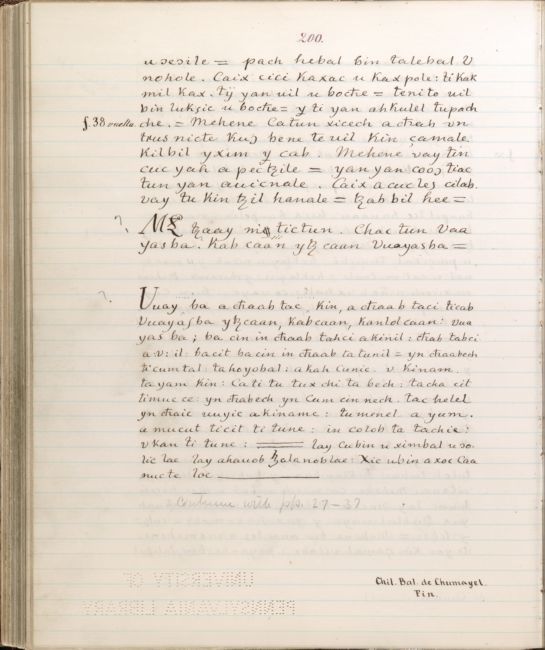 200.
u sosile = pach hebal bin talebal U
nohole. Caix cici kaxac u kax pole: ti kak
mil kax. tij yan uil u boche = tenito uil
bin luksic u boche = y ti yan ahkulel tu pach
f. 38 vuelta. che. = Mehene Ca tun xicech a chab un
tzus nicte kuɔ bene te uil kin çamale.
kilbil yxim y cab. Mehene vay tin
cuc yah a peiꜩile = yan yan cooɔ tiac
tun yan auicnale. Caix a cuc les cilab.
vay tu kin ꜩil hanale = ꜩab bil hee =
? tictun. Chac tun Vaa
yasba. kab caan yꜩ caan Vuayasba =
? Vuay ba a chaab tac, kin, a chaab taci ticab
Vuayasba yꜩcaan, kabcaan, kanlol caan: Vua
yas ba; ba cin in chaab tahci a kinil: chab tabci
a v: il: bacit bacin in chaab ta tunil = yn chaabech
ticumtal: tahoyobal: a kah Cunic. v kinam.
tayam kin: Ca ti tu tux chi ta bech: tacha cit
timuc ce: yn chabech yn Cum cin nech. tac helel
yn chaic uuyic a kiname: tumenel a yum.
a mucut ticit ti tune: in colob ta tachie:
v kan ti tune: lay Cubin u ximbal u so
lic lae lay ahauob ꜩalanoblae: Xic ubin a xoc Caa
nucte loe
Continue with pps. 27-37
UNIVERSITY OF
PENNSYLVANIA LIBRARY
Chil. Bal. de Chumayel.
Fin.